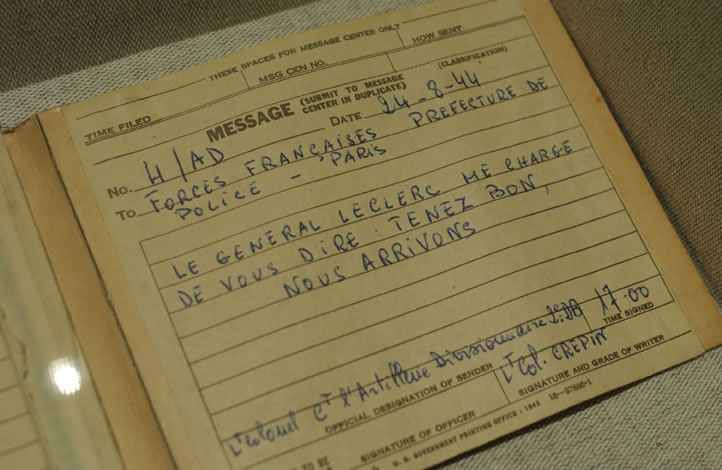 THESE SPACES FOR MESSAGE CENTER ONLY
TIME FILED MSG CEN NO. HOW SENT
MESSAGE (SUBMIT TO MESSAGE CENTER IN DUPLICATE) (CLASSIFICATION)
No. H/AD DATE 24-8-44
TO FORCES FRANÇAISES PREFECTURE DE
POLICE - PARIS
LE GENERAL LECLERC ME CHARGE
DE VOUS DIRE : TENEZ BON,
NOUS ARRIVONS
Lt Colonel Ct l'Artillerie Divisionnaire 2e DB 17.00
OFFICIAL DESIGNATION OF SENDER TIME SIGNED
Lt Col. CREPIN
SIGNATURE OF OFFICER SIGNATURE AND GRADE OF WRITER
U. S. GOVERNMENT PRINTING OFFICE
TO BE